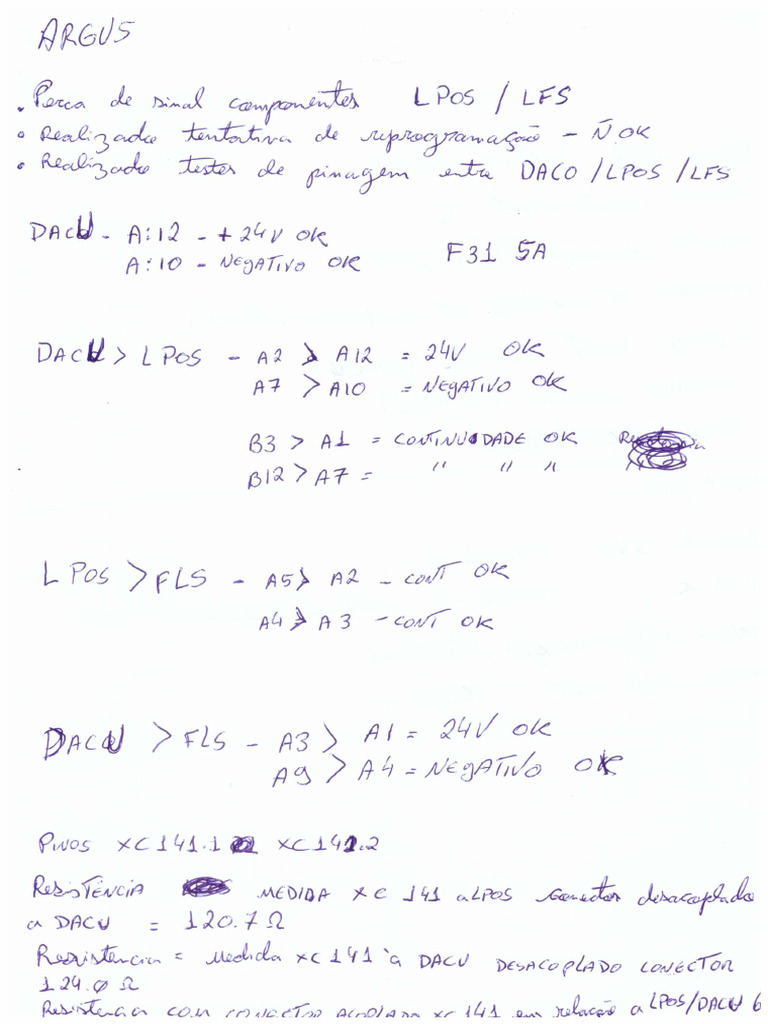 ARGUS
. Perca de sinal componentes LPOS / LFS
• Realizado tentativa de reprogramação - Ñ OK
• Realizado testes de pinagem entre DACO / LPOS / LFS
DACU - A:12 - + 24V OK
A:10 - NEGATIVO OK F31 5A
DACU > LPOS - A2 > A12 = 24V OK
A7 > A10 = NEGATIVO OK
B3 > A1 = CONTINUIDADE OK
B12 > A7 = " " "
LPOS > FLS - A5 > A2 - CONT OK
A4 > A3 - CONT OK
DACU > FLS - A3 > A1 = 24V OK
A9 > A4 = NEGATIVO OK
PINOS XC141.1 XC141.2
RESISTÊNCIA MEDIDA XC 141 a LPOS conector desacoplado
a DACU = 120.7 Ω
Resistencia = Medida XC141 a DACU DESACOPLADO CONECTOR
124.0 Ω
RESISTENCIA COM CONECTOR ACOPLADO XC141 em relação a LPOS/DACU 6